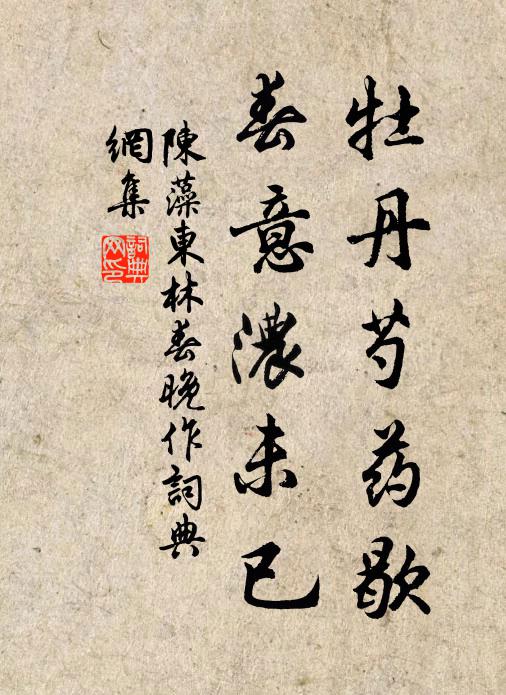 牡丹芍药歇
春意濃未已
陳藻東林春晚作詞典
網集
詞典
网印